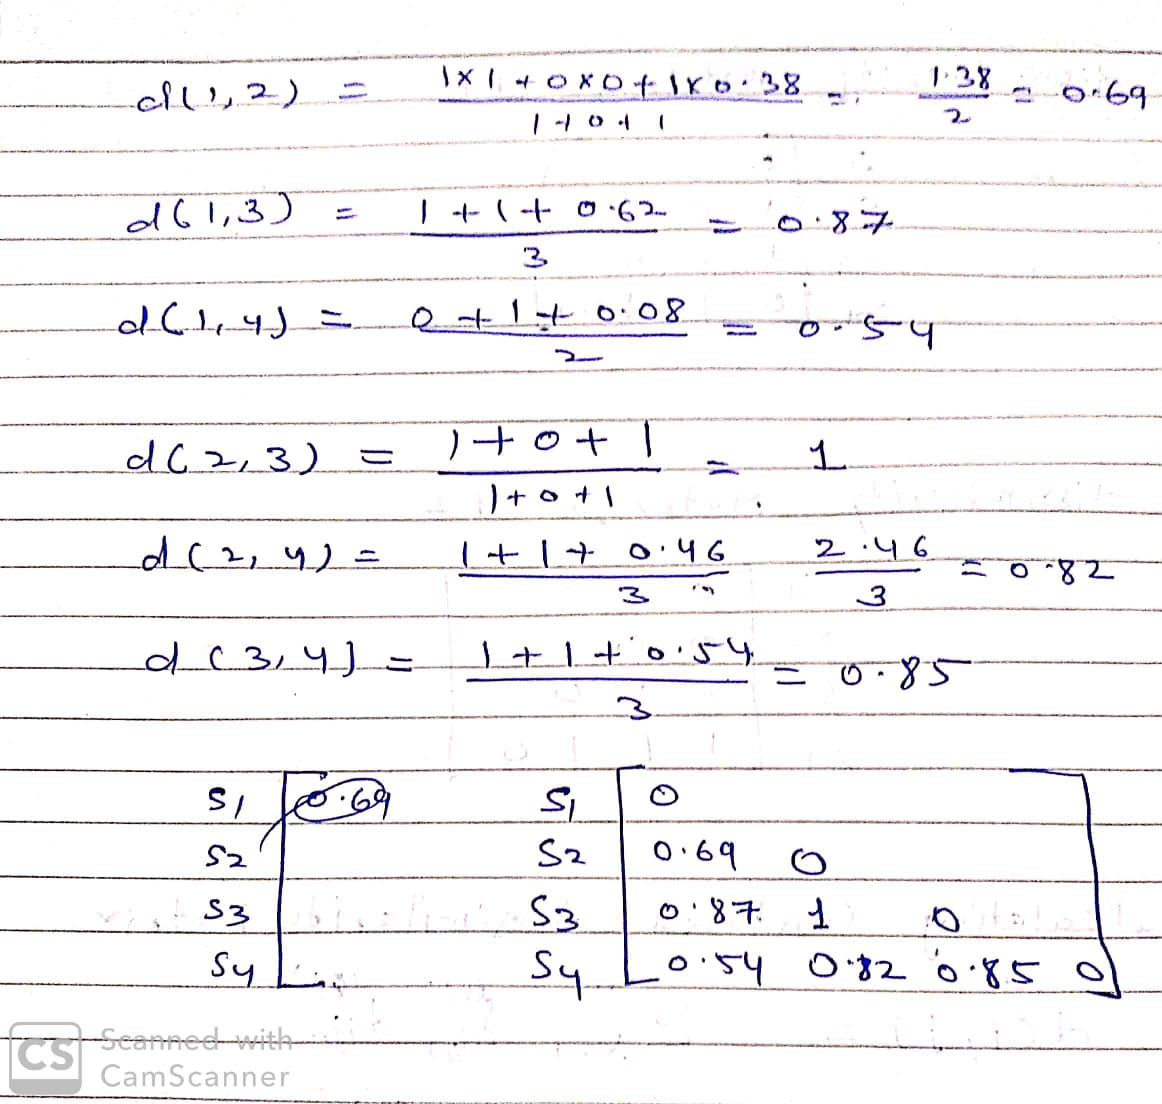 d(1,2) = 1×1+0×0+1×0.38 / 1+0+1 = 1.38 / 2 = 0.69
d(1,3) = 1+1+0.62 / 3 = 0.87
d(1,4) = 0+1+0.08 / 2 = 0.54
d(2,3) = 1+0+1 / 1+0+1 = 1
d(2,4) = 1+1+0.46 / 3 2.46 / 3 = 0.82
d(3,4) = 1+1+0.54 / 3 = 0.85
S1 0.69 S1 0
S2 S2 0.69 0
S3 S3 0.87 1 0
S4 S4 0.54 0.82 0.85 0
CS Scanned with
CamScanner